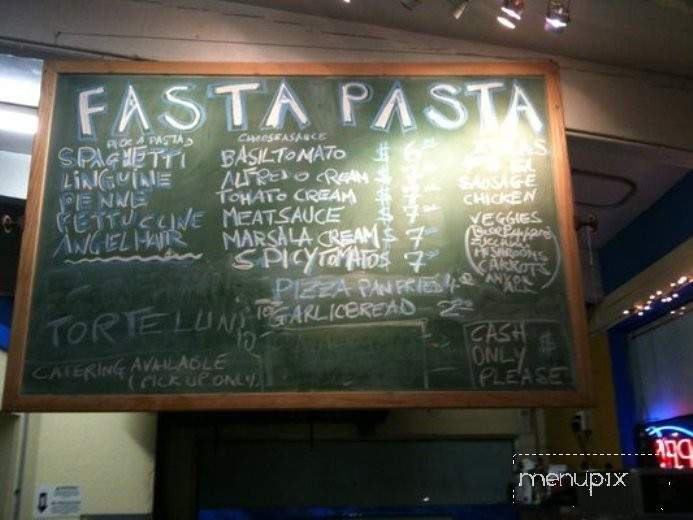 FASTA PASTA
PICK A PASTA
SPAGHETTI
LINGUINE
PENNE
FETTUCCINE
ANGEL HAIR
CHOOSE A SAUCE
BASIL TOMATO $ 6
ALFREDO CREAM $ 7
TOMATO CREAM $ 7
MEAT SAUCE $ 7
MARSALA CREAM $ 7
SPICY TOMATO $ 7
SAUSAGE
CHICKEN
VEGGIES
MUSHROOMS
CARROTS
PIZZA PAN FRIED
GARLIC BREAD
TORTELLINI
CATERING AVAILABLE
(PICK UP ONLY)
CASH
ONLY
PLEASE
menupix